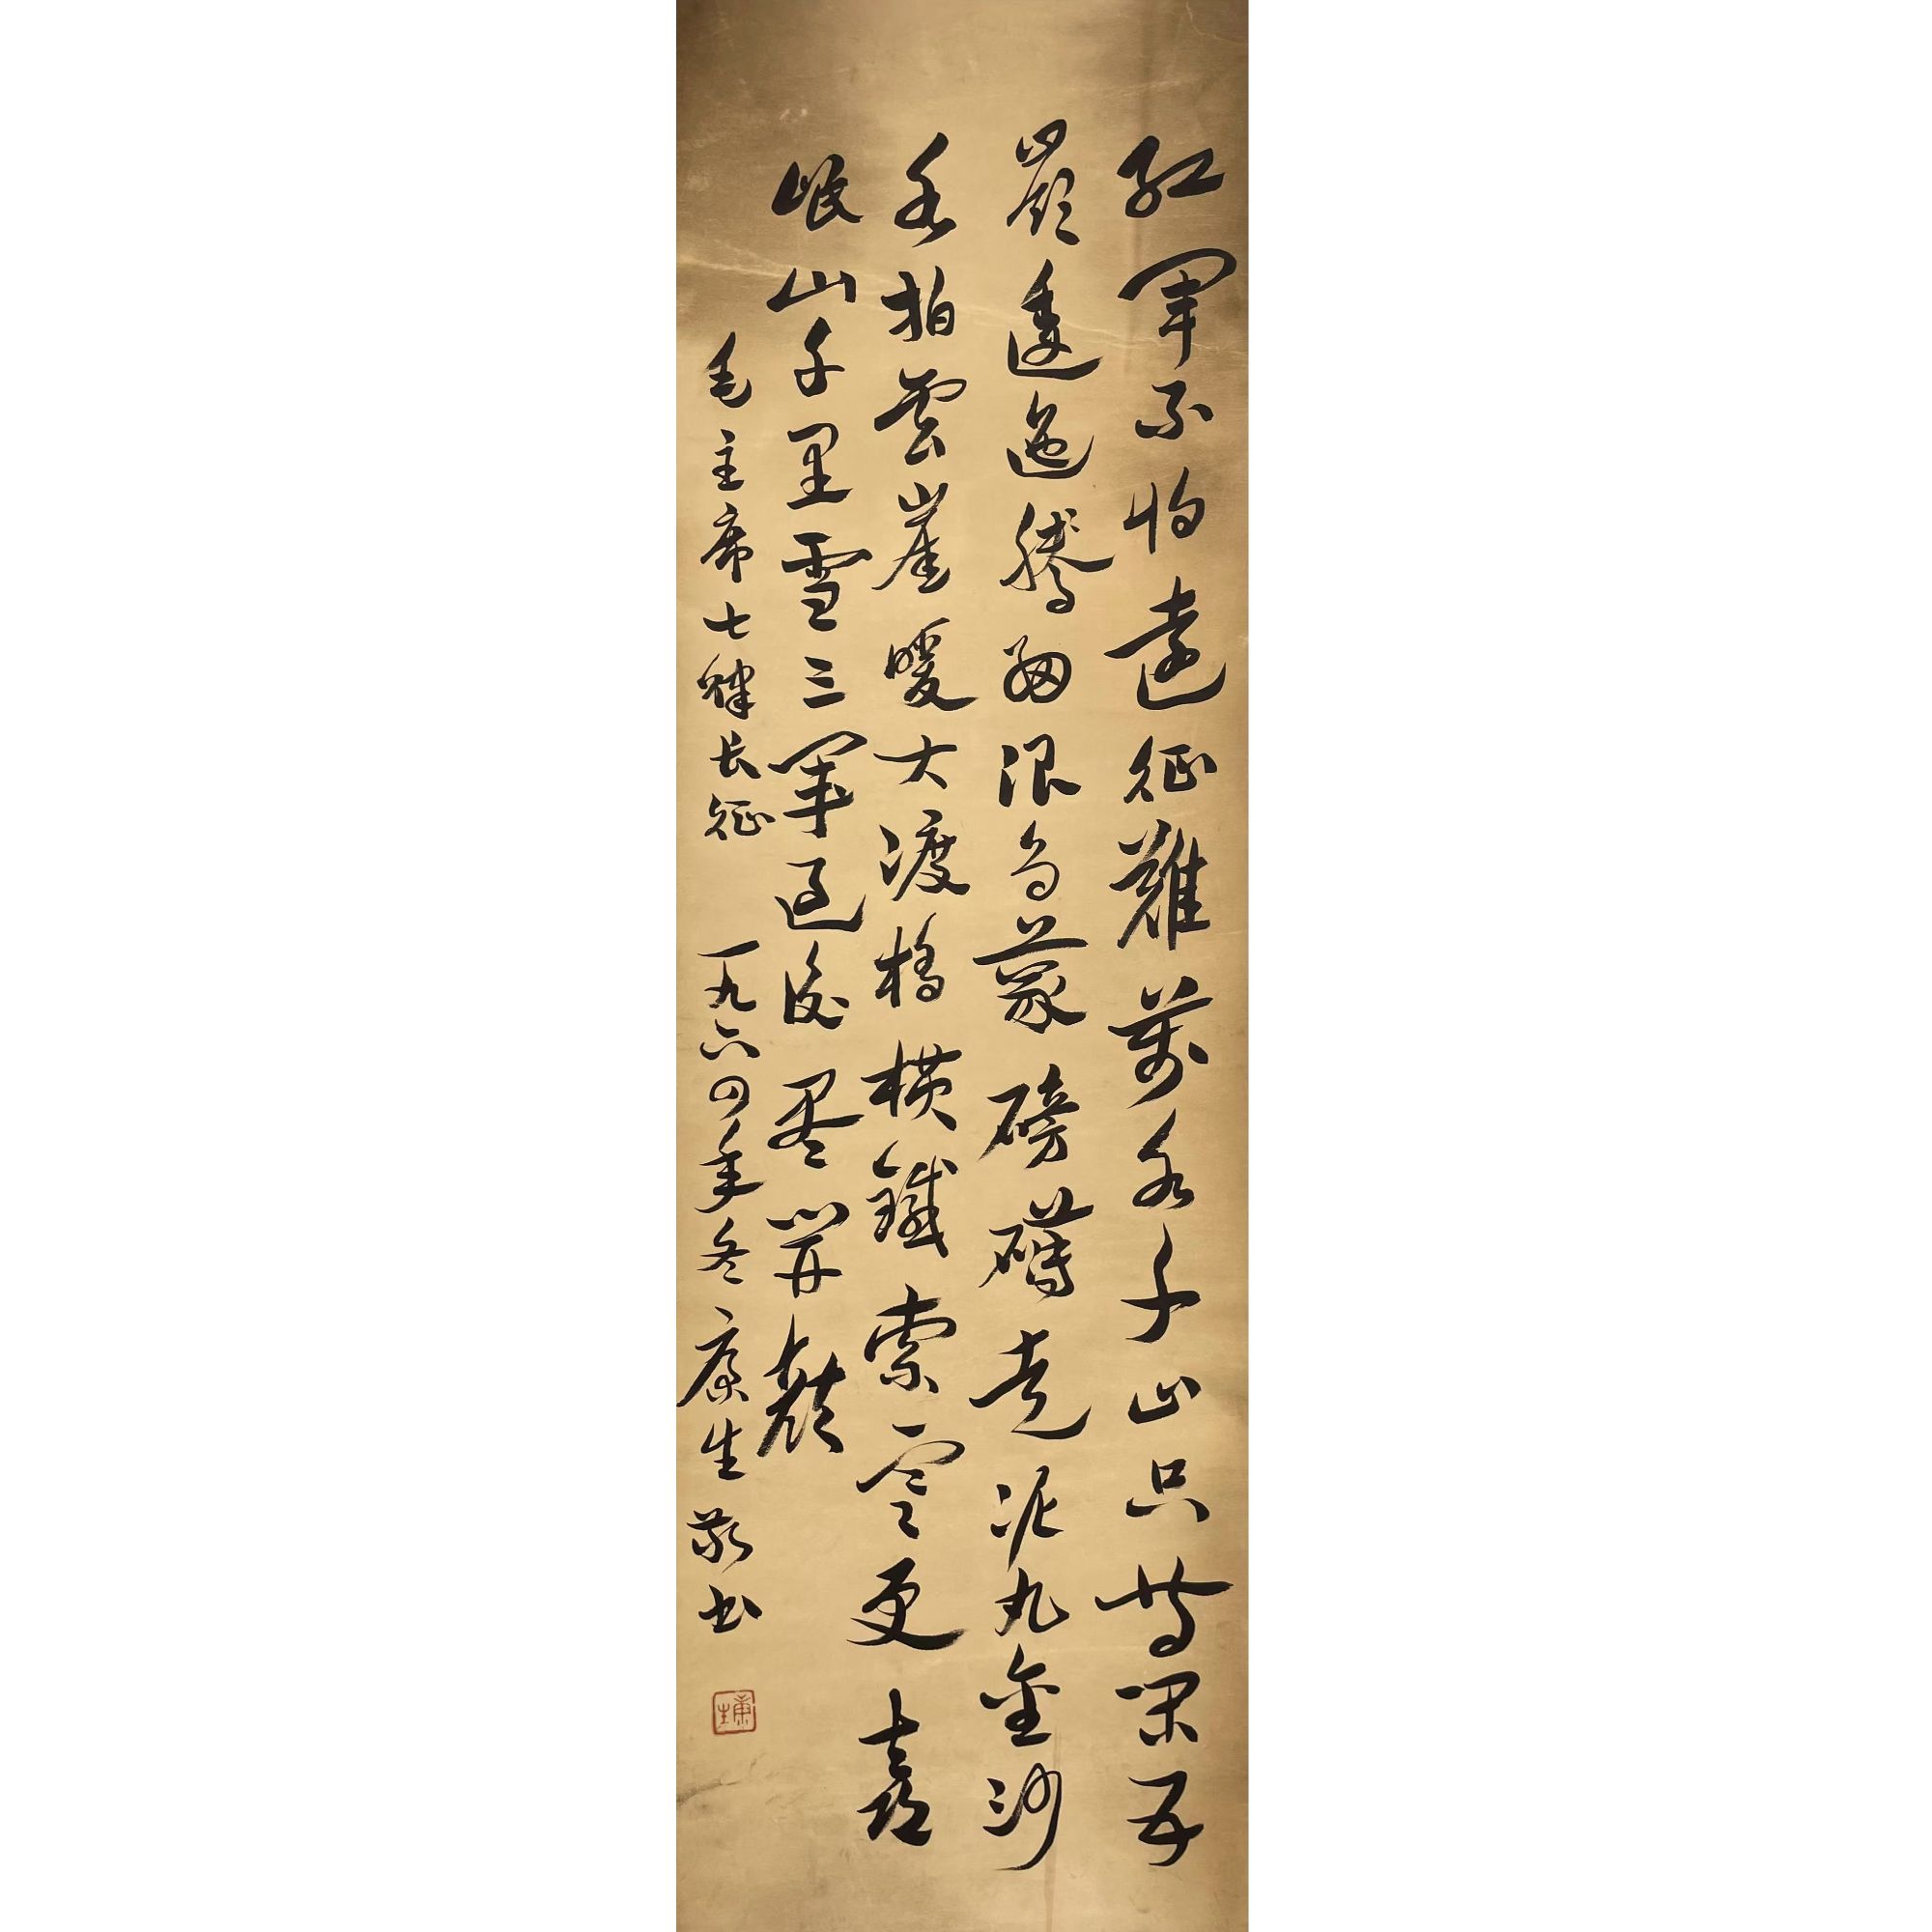 紅軍不怕遠征難萬水千山只等閑五
嶺逶迤騰細浪烏蒙磅礴走泥丸金沙
水拍雲崖暖大渡橋橫鐵索寒更喜
岷山千里雪三軍過後尽開顏
毛主席七律长征 一九六四年冬康生敬书
康生